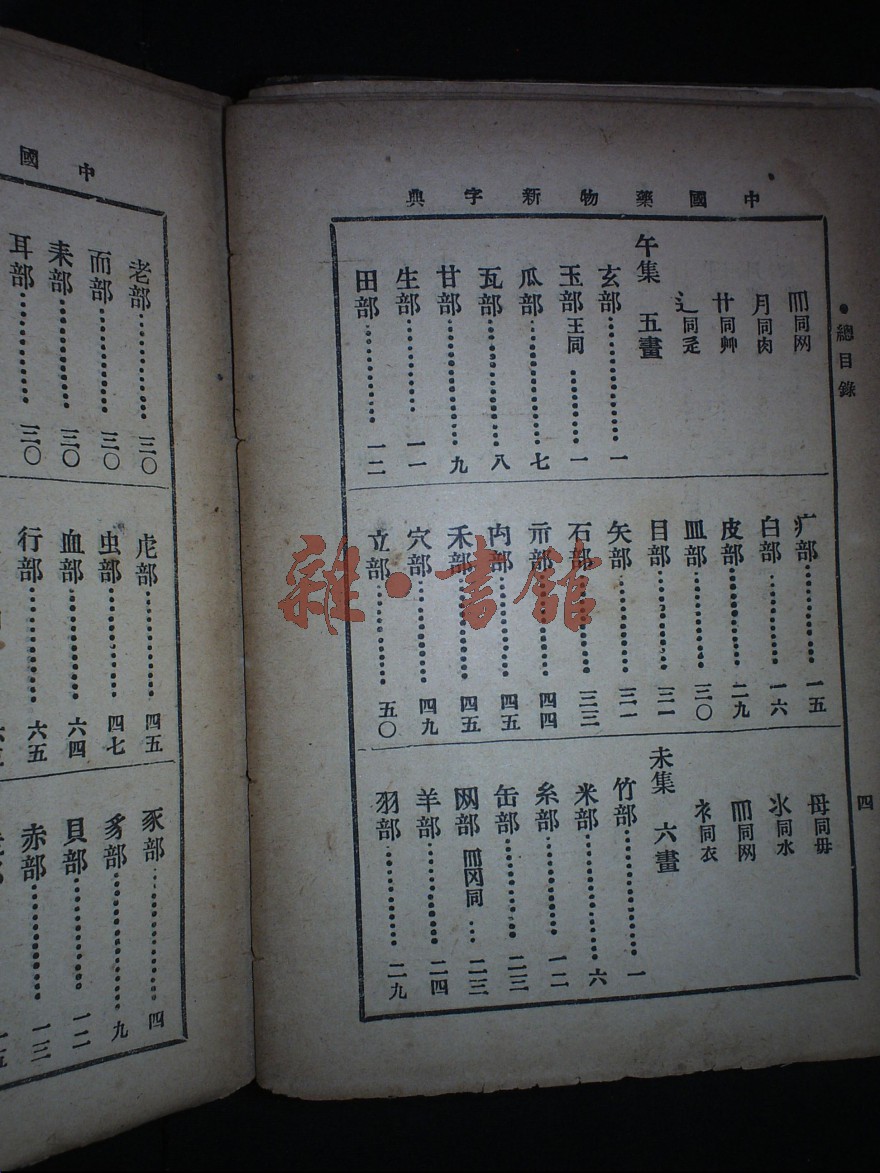 中國藥物新字典
●總目錄
四
罒同网
月同肉
艹同艸
辶同辵
午集 五畫
玄部……一
玉部王同……一
瓜部……七
瓦部……八
甘部……九
生部……一一
田部……一二
疒部……一五
白部……一六
皮部……二九
皿部……三〇
目部……三一
矢部……三一
石部……三三
示部……四四
禸部……四五
禾部……四五
穴部……四九
立部……五〇
母同毋
氺同水
罒同网
衤同衣
未集 六畫
竹部……一
米部……六
糸部……一二
缶部……二三
网部罒罓同…二三
羊部……二四
羽部……二九
中國
老部……三〇
而部……三〇
耒部……三〇
耳部……三〇
虍部……四五
虫部……四七
血部……六四
行部……六五
豕部……四
豸部……九
貝部……一二
赤部……一三
雜·書館